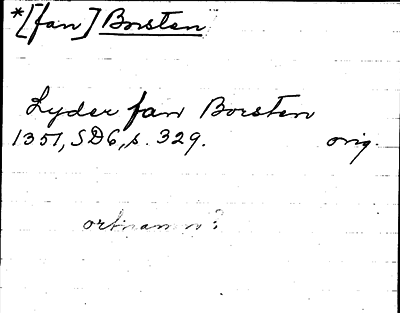 *[fan] Borsten
Lyder fan Borsten
1351, SD6, s. 329. orig.
ortnamn?